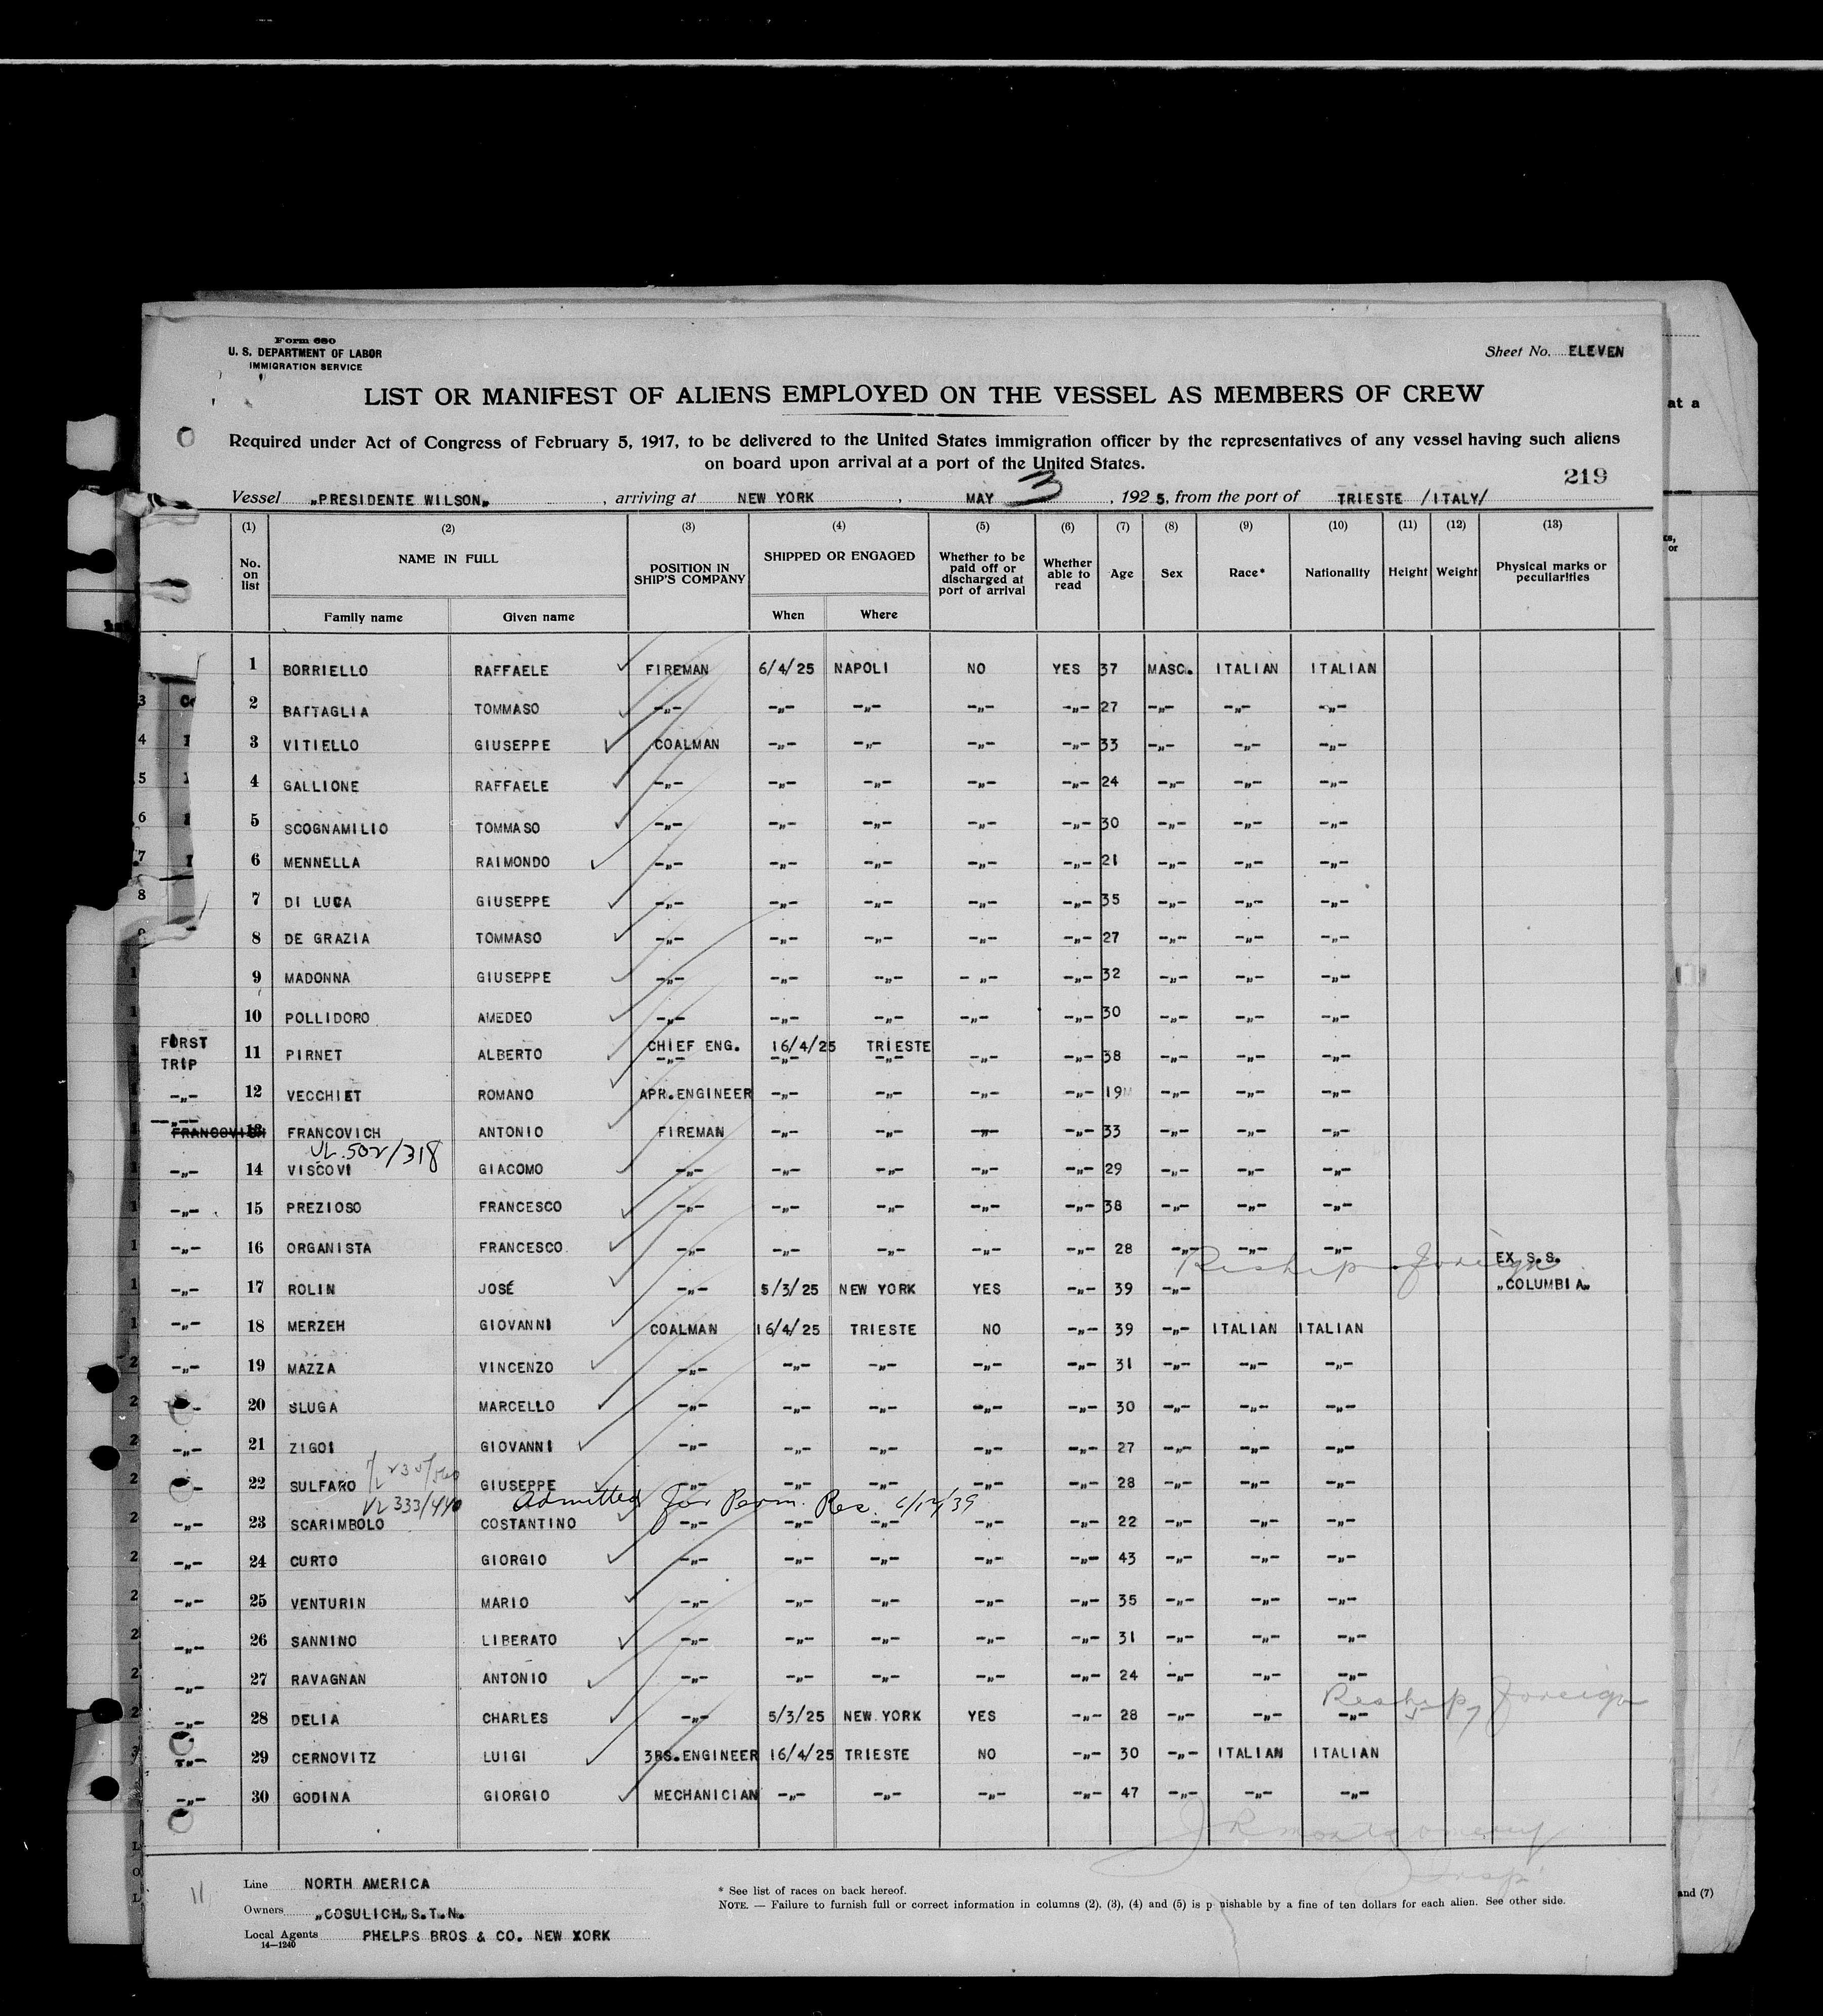 Form 680
U. S. DEPARTMENT OF LABOR
IMMIGRATION SERVICE
Sheet No. ELEVEN
LIST OR MANIFEST OF ALIENS EMPLOYED ON THE VESSEL AS MEMBERS OF CREW
Required under Act of Congress of February 5, 1917, to be delivered to the United States immigration officer by the representatives of any vessel having such aliens
on board upon arrival at a port of the United States.
219
Vessel „PRESIDENTE WILSON„ , arriving at NEW YORK , MAY 3 , 1925, from the port of TRIESTE /ITALY/
(1) (2) (3) (4) (5) (6) (7) (8) (9) (10) (11) (12) (13)
No. on list NAME IN FULL POSITION IN SHIP'S COMPANY SHIPPED OR ENGAGED Whether to be paid off or discharged at port of arrival Whether able to read Age Sex Race* Nationality Height Weight Physical marks or peculiarities
Family name Given name When Where
1 BORRIELLO RAFFAELE FIREMAN 6/4/25 NAPOLI NO YES 37 MASC. ITALIAN ITALIAN
2 BATTAGLIA TOMMASO -„- -„- -„- -„- -„- 27 -„- -„- -„-
3 VITIELLO GIUSEPPE COALMAN -„- -„- -„- -„- 33 -„- -„- -„-
4 GALLIONE RAFFAELE -„- -„- -„- -„- -„- 24 -„- -„- -„-
5 SCOGNAMILIO TOMMASO -„- -„- -„- -„- -„- 30 -„- -„- -„-
6 MENNELLA RAIMONDO -„- -„- -„- -„- -„- 21 -„- -„- -„-
7 DI LUCA GIUSEPPE -„- -„- -„- -„- -„- 35 -„- -„- -„-
8 DE GRAZIA TOMMASO -„- -„- -„- -„- -„- 27 -„- -„- -„-
9 MADONNA GIUSEPPE -„- -„- -„- -„- -„- 32 -„- -„- -„-
10 POLLIDORO AMEDEO -„- -„- -„- -„- -„- 30 -„- -„- -„-
FIRST TRIP 11 PIRNET ALBERTO CHIEF ENG. 16/4/25 TRIESTE -„- -„- 38 -„- -„- -„-
-„- 12 VECCHIET ROMANO APR.ENGINEER -„- -„- -„- -„- 19 -„- -„- -„-
-„- FRANCOVICH 13 FRANCOVICH ANTONIO FIREMAN -„- -„- -„- -„- 33 -„- -„- -„-
VL.502/318
-„- 14 VISCOVI GIACOMO -„- -„- -„- -„- -„- 29 -„- -„- -„-
-„- 15 PREZIOSO FRANCESCO -„- -„- -„- -„- -„- 38 -„- -„- -„-
-„- 16 ORGANISTA FRANCESCO -„- -„- -„- -„- -„- 28 -„- -„- -„-
Reship foreign
-„- 17 ROLIN JOSÉ -„- 5/3/25 NEW YORK YES -„- 39 -„- EX S.S. „COLUMBIA„
-„- 18 MERZEH GIOVANNI COALMAN 16/4/25 TRIESTE NO -„- 39 -„- ITALIAN ITALIAN
-„- 19 MAZZA VINCENZO -„- -„- -„- -„- -„- 31 -„- -„- -„-
20 SLUGA MARCELLO -„- -„- -„- -„- -„- 30 -„- -„- -„-
-„- 21 ZIGOI GIOVANNI -„- -„- -„- -„- -„- 27 -„- -„- -„-
22 SULFARO GIUSEPPE -„- -„- -„- -„- -„- 28 -„- -„- -„-
VL 333/440 Admitted for Perm. Res.
-„- 23 SCARIMBOLO COSTANTINO -„- -„- -„- -„- -„- 22 -„- -„- -„-
-„- 24 CURTO GIORGIO -„- -„- -„- -„- -„- 43 -„- -„- -„-
-„- 25 VENTURIN MARIO -„- -„- -„- -„- -„- 35 -„- -„- -„-
-„- 26 SANNINO LIBERATO -„- -„- -„- -„- -„- 31 -„- -„- -„-
-„- 27 RAVAGNAN ANTONIO -„- -„- -„- -„- -„- 24 -„- -„- -„-
Reship foreign
-„- 28 DELIA CHARLES -„- 5/3/25 NEW YORK YES -„- 28 -„- -„- -„-
-„- 29 CERNOVITZ LUIGI 3RS.ENGINEER 16/4/25 TRIESTE NO -„- 30 -„- ITALIAN ITALIAN
-„- 30 GODINA GIORGIO MECHANICIAN -„- -„- -„- -„- 47 -„- -„- -„-
J R Montgomery
Insp
11
Line NORTH AMERICA
Owners „COSULICH„S.T.N.
Local Agents PHELPS BROS & CO. NEW YORK
14—1240
* See list of races on back hereof.
NOTE. — Failure to furnish full or correct information in columns (2), (3), (4) and (5) is punishable by a fine of ten dollars for each alien. See other side.
at a
and (7)